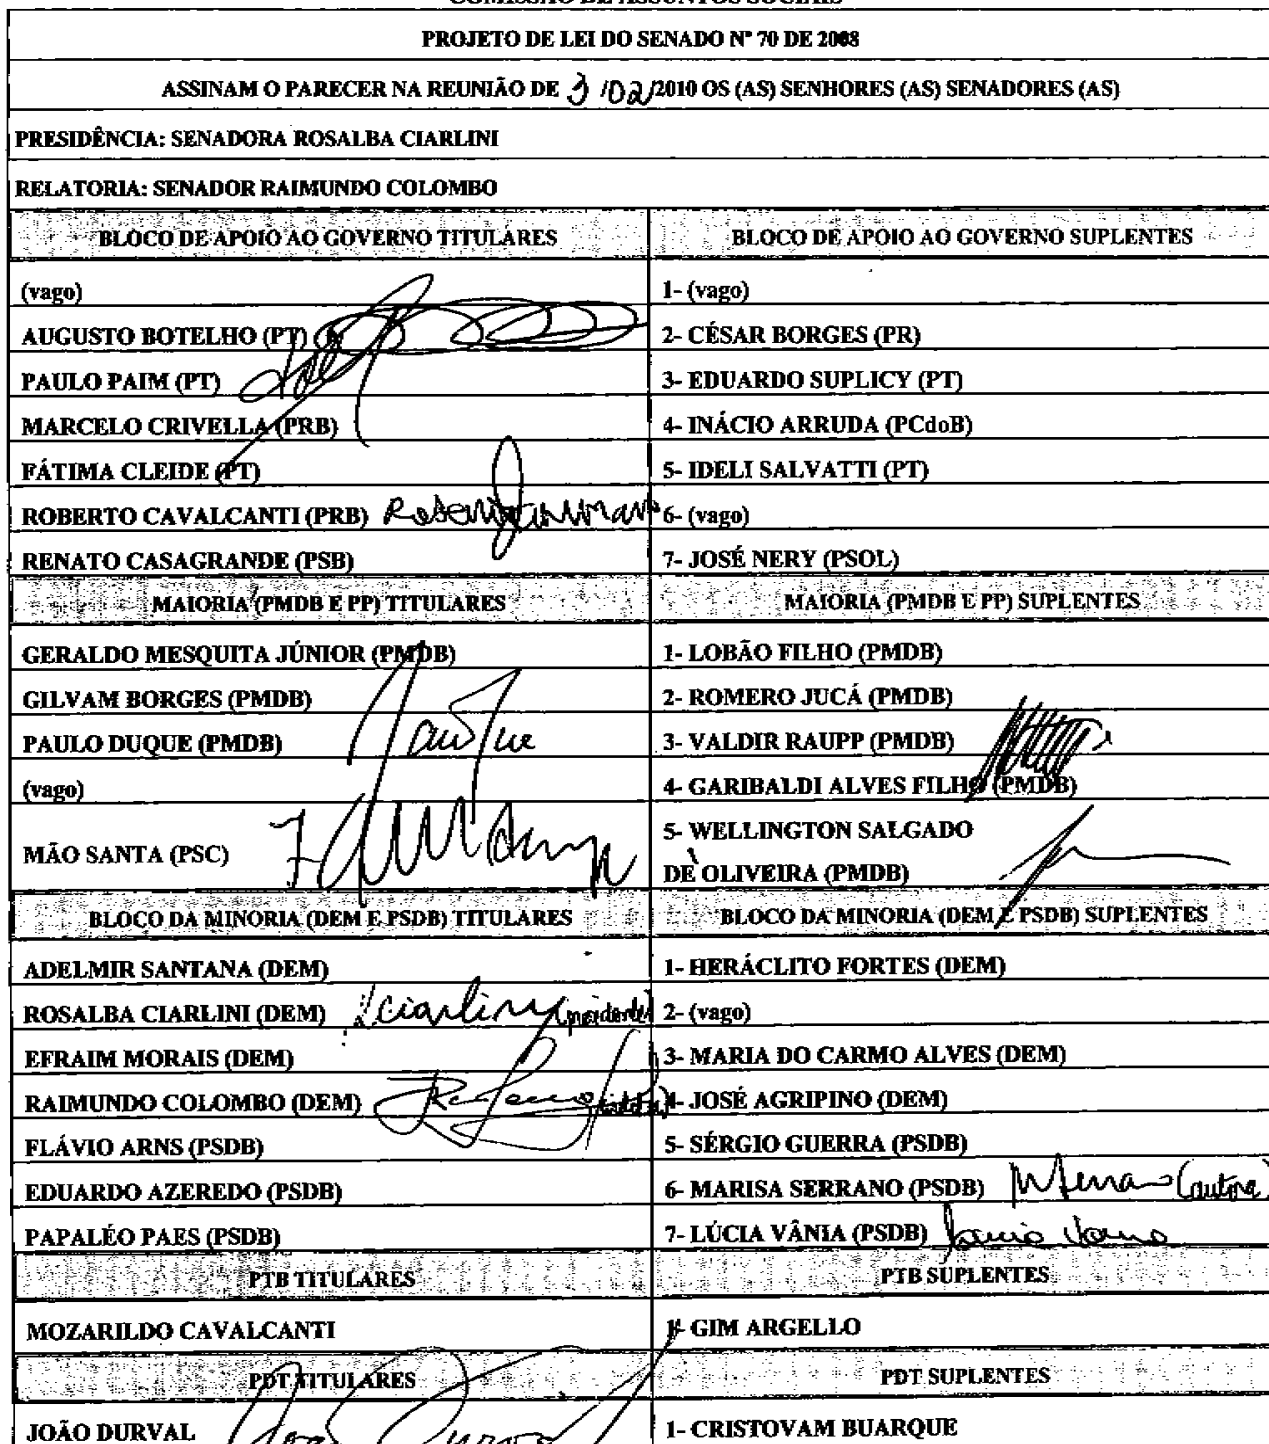 COMISSÃO DE ASSUNTOS SOCIAIS
PROJETO DE LEI DO SENADO Nº 70 DE 2008
ASSINAM O PARECER NA REUNIÃO DE 3 /02/2010 OS (AS) SENHORES (AS) SENADORES (AS)
PRESIDÊNCIA: SENADORA ROSALBA CIARLINI
RELATORIA: SENADOR RAIMUNDO COLOMBO
BLOCO DE APOIO AO GOVERNO TITULARES BLOCO DE APOIO AO GOVERNO SUPLENTES
(vago) 1- (vago)
AUGUSTO BOTELHO (PT) 2- CÉSAR BORGES (PR)
PAULO PAIM (PT) 3- EDUARDO SUPLICY (PT)
MARCELO CRIVELLA (PRB) 4- INÁCIO ARRUDA (PCdoB)
FÁTIMA CLEIDE (PT) 5- IDELI SALVATTI (PT)
ROBERTO CAVALCANTI (PRB) 6- (vago)
RENATO CASAGRANDE (PSB) 7- JOSÉ NERY (PSOL)
MAIORIA (PMDB E PP) TITULARES MAIORIA (PMDB E PP) SUPLENTES
GERALDO MESQUITA JÚNIOR (PMDB) 1- LOBÃO FILHO (PMDB)
GILVAM BORGES (PMDB) 2- ROMERO JUCÁ (PMDB)
PAULO DUQUE (PMDB) 3- VALDIR RAUPP (PMDB)
(vago) 4- GARIBALDI ALVES FILHO (PMDB)
MÃO SANTA (PSC) 5- WELLINGTON SALGADO
DE OLIVEIRA (PMDB)
BLOCO DA MINORIA (DEM E PSDB) TITULARES BLOCO DA MINORIA (DEM E PSDB) SUPLENTES
ADELMIR SANTANA (DEM) 1- HERÁCLITO FORTES (DEM)
ROSALBA CIARLINI (DEM) Ciarlini (presidente) 2- (vago)
EFRAIM MORAIS (DEM) 3- MARIA DO CARMO ALVES (DEM)
RAIMUNDO COLOMBO (DEM) 4- JOSÉ AGRIPINO (DEM)
FLÁVIO ARNS (PSDB) 5- SÉRGIO GUERRA (PSDB)
EDUARDO AZEREDO (PSDB) 6- MARISA SERRANO (PSDB) (autora)
PAPALÉO PAES (PSDB) 7- LÚCIA VÂNIA (PSDB) Lúcia Vânia
PTB TITULARES PTB SUPLENTES
MOZARILDO CAVALCANTI 1- GIM ARGELLO
PDT TITULARES PDT SUPLENTES
JOÃO DURVAL 1- CRISTOVAM BUARQUE